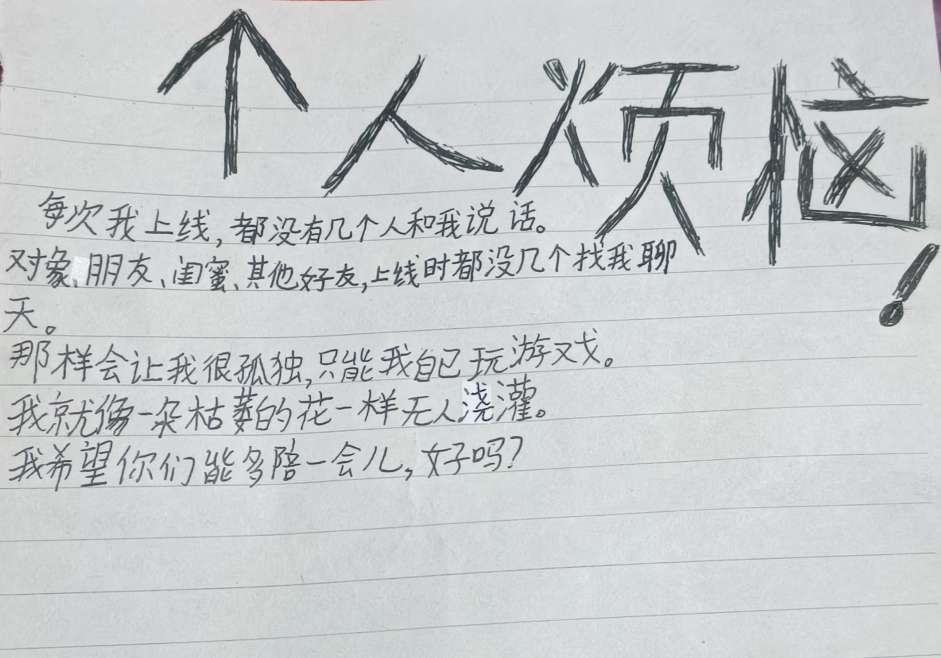 个人烦恼!
每次我上线,都没有几个人和我说话。
对象、朋友、闺蜜、其他好友,上线时都没几个找我聊
天。
那样会让我很孤独,只能我自己玩游戏。
我就像一朵枯萎的花一样无人浇灌。
我希望你们能多陪一会儿,好吗?